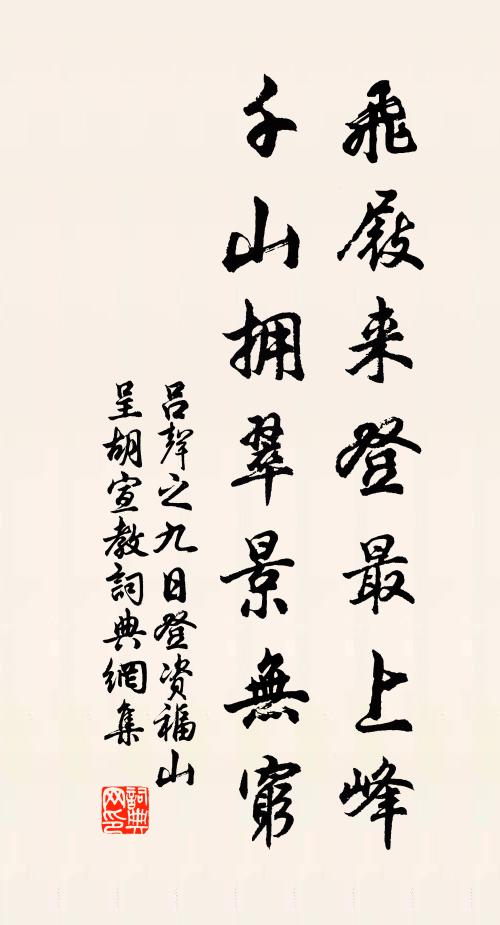 飛屐来登最上峰
千山拥翠景無窮
吕聲之九日登资福山
呈胡宣教詞典網集
詞典网印